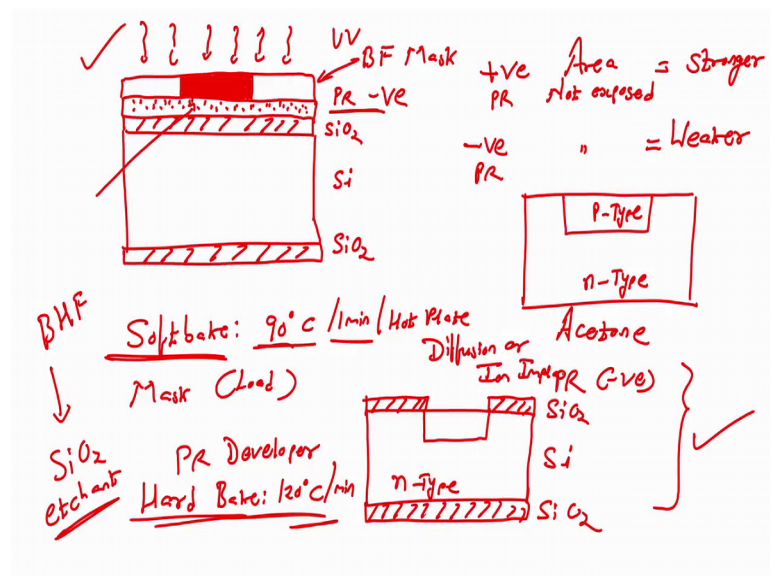 UV
BF Mask
PR -ve
SiO2
Si
SiO2
+ve PR Area Not exposed = Stronger
-ve PR " = Weaker
P-Type
n-Type
Acetone
BHF
SiO2
etchant
Softbake: 90°C /1min/Hot Plate
Mask (Load)
PR Developer
Hard Bake: 120°C/min
Diffusion or
Ion Impl
PR (-ve)
SiO2
Si
n-Type
SiO2